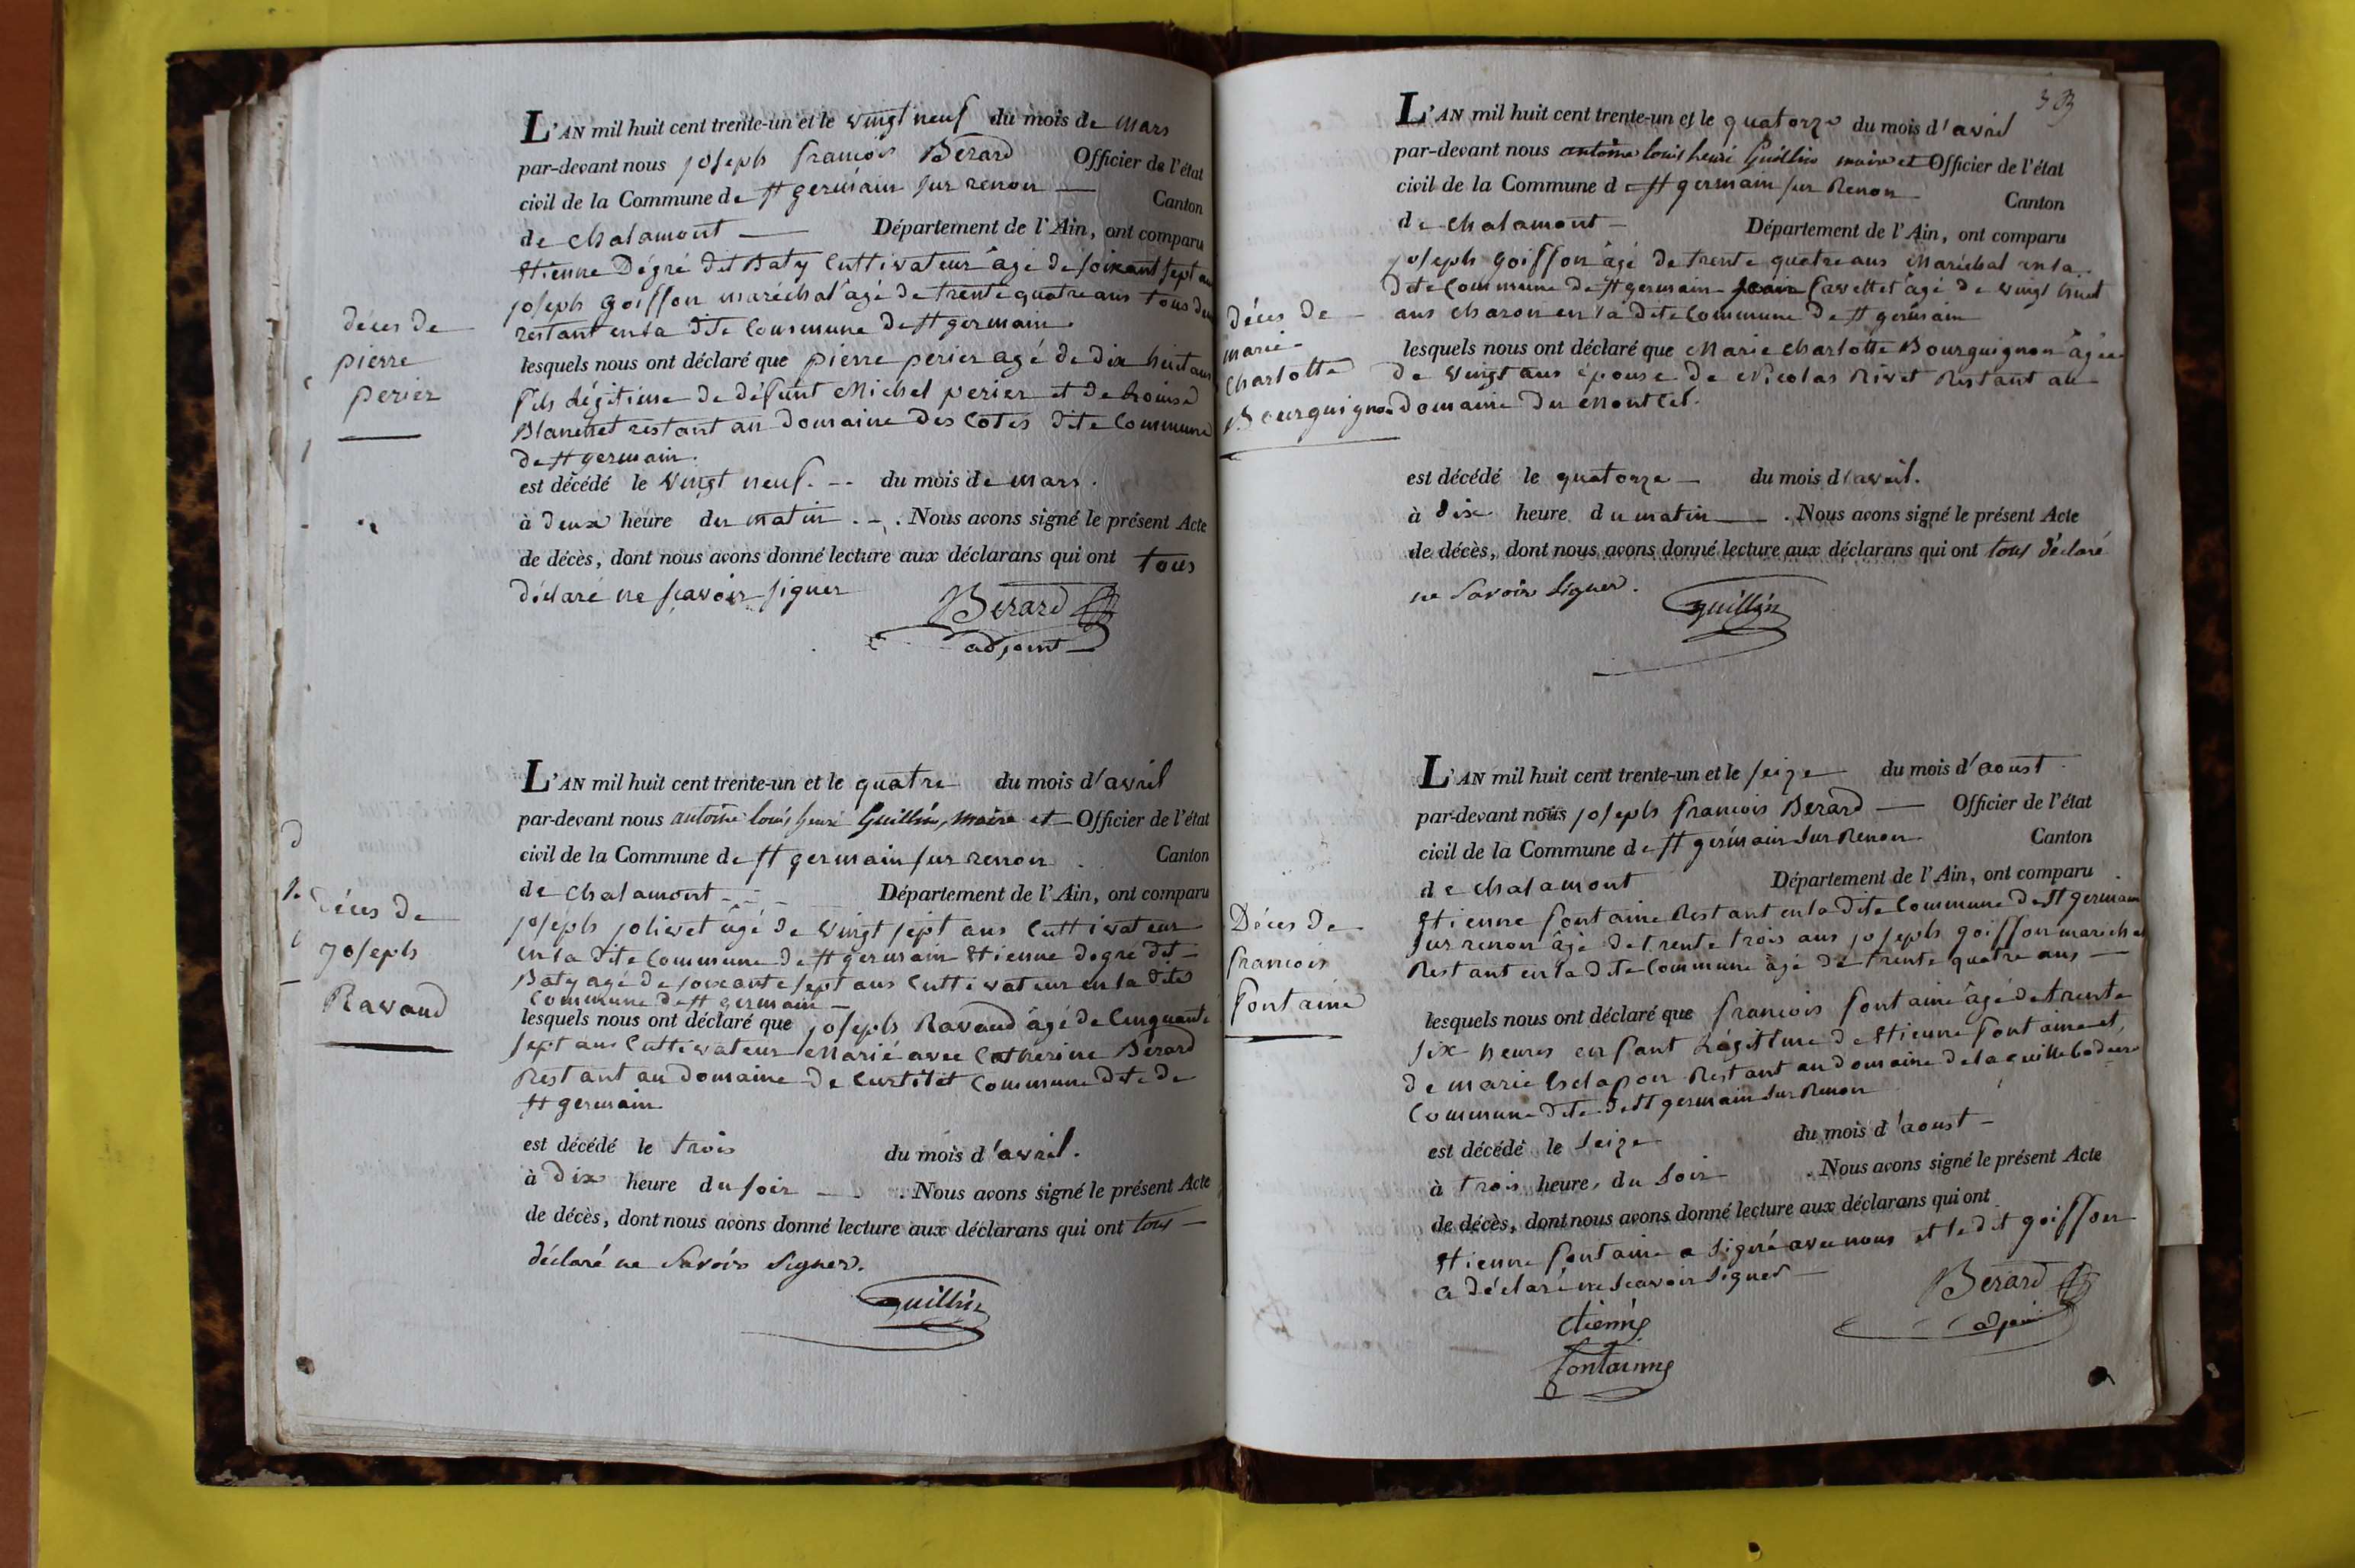 L'AN mil huit cent trente-un et le vingt neuf du mois de Mars
par-devant nous joseph francois Berard Officier de l'état
civil de la Commune de St germain sur renon Canton
de chalamont Département de l'Ain, ont comparu
Etienne Dégré dit Baty Cultivateur âgé de soixant sept an
joseph goiffon maréchal âgé de trente quatre ans tous deu
restant en la dite Commune de St germain.
décès de
pierre
perier
lesquels nous ont déclaré que pierre perier agé de dix huit ans
fils Légitime de défunt Michel perier et de Louise
restant au Domaine des Cotes dite Commune
de St germain.
est décédé le vingt neuf. du mois de mars.
à deux heure du matin . Nous avons signé le présent Acte
de décès, dont nous avons donné lecture aux déclarans qui ont tous
déclaré ne scavoir signer
Berard
adjoint
L'AN mil huit cent trente-un et le quatre du mois d'avril
par-devant nous antoine louis henri Guillin, maire et Officier de l'état
civil de la Commune de St germain sur renon Canton
de chalamont Département de l'Ain, ont comparu
joseph jolivet âgé de vingt sept ans Cultivateur
en la dite Commune de St germain Etienne degré dit
Baty agé de soixante sept ans Cultivateur en la dite
Commune de St germain
Décès de
joseph
Ravaud
lesquels nous ont déclaré que joseph Ravaud âgé de Cinquante
sept ans Cultivateur Marié avec Catherine Bérard
Restant au domaine de Curtilet Commune dite de
St germain
est décédé le trois du mois d'avril.
à dix heure du soir . Nous avons signé le présent Acte
de décès, dont nous avons donné lecture aux déclarans qui ont tous
déclaré ne savoir signer.
guillin
L'AN mil huit cent trente-un et le quatorze du mois d'avril
par-devant nous antoine louis henri Guillin maire et Officier de l'état
civil de la Commune de St germain sur Renon Canton
de chalamont Département de l'Ain, ont comparu
joseph goiffon âgé de trente quatre ans Maréchal en la
dite Commune de St germain Jean Cavettet âgé de vingt huit
ans charon en la dite Commune de St germain
décès de
marie
Charlotte
Bourguignon
lesquels nous ont déclaré que Marie charlotte Bourguignon âgée
de vingt ans épouse de Nicolas Rivet Restant au
domaine du Montcel.
est décédé le quatorze du mois d'avril.
à dix heure du matin . Nous avons signé le présent Acte
de décès, dont nous avons donné lecture aux déclarans qui ont tous déclaré
ne savoir signer.
guillin
L'AN mil huit cent trente-un et le seize du mois d'aoust
par-devant nous joseph francois Berard Officier de l'état
civil de la Commune de St germain sur Renon Canton
de chalamont Département de l'Ain, ont comparu
Etienne fontaine Restant en la dite Commune de St germain
sur renon âgé de trente trois ans joseph goiffon marechal
Restant en la dite Commune âgé de trente quatre ans
Décès de
francois
fontaine
lesquels nous ont déclaré que francois fontaine âgé de trente
six heures enfant Légitime de Etienne fontaine et
de marie Restant au domaine de la
Commune dite de St germain sur Renon
est décédé le seize du mois d'aoust
à trois heure, du soir . Nous avons signé le présent Acte
de décès, dont nous avons donné lecture aux déclarans qui ont
Etienne fontaine a signé avec nous et le dit goiffon
a déclaré ne scavoir signer
Berard
adjoint
etienne
fontainne